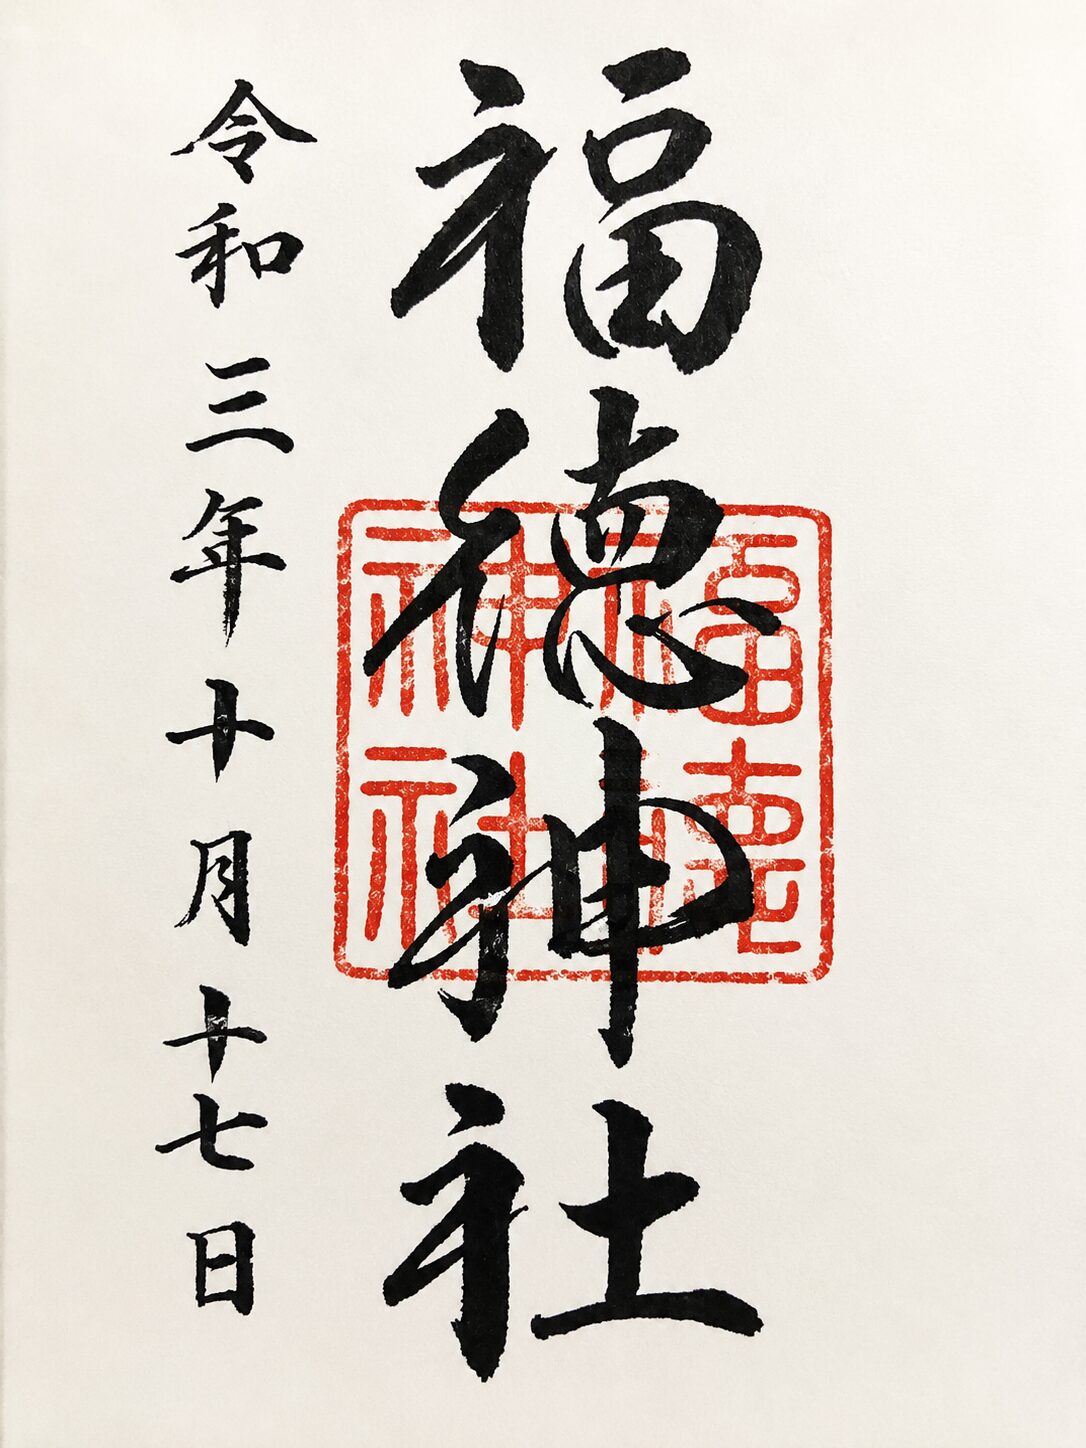 福徳神社
令和三年十月十七日
福徳
神社